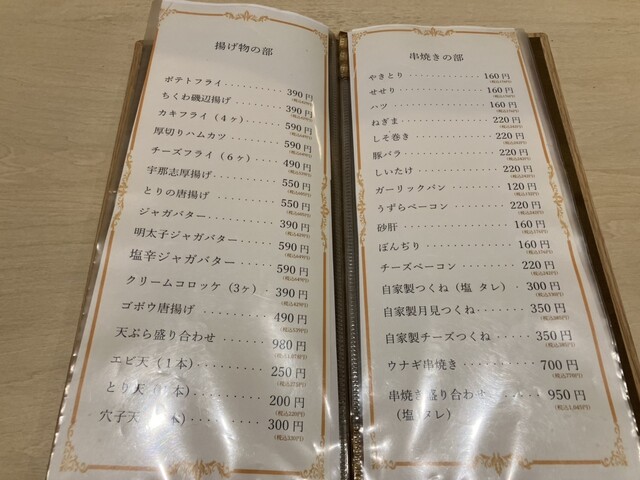 揚げ物の部
ポテトフライ・・・・・・・・・・390円
ちくわ磯辺揚げ・・・・・・・・390円
カキフライ(4ヶ)・・・・・・590円
厚切りハムカツ・・・・・・・・590円
チーズフライ(6ヶ)・・・・490円
宇那志厚揚げ・・・・・・・・・550円
とりの唐揚げ・・・・・・・・・550円
ジャガバター・・・・・・・・・390円
明太子ジャガバター・・・・590円
塩辛ジャガバター・・・・・590円
クリームコロッケ(3ヶ)・390円
ゴボウ唐揚げ・・・・・・・・・490円
天ぷら盛り合わせ・・・・・980円
エビ天(1本)・・・・・・・・250円
とり天 本)・・・・・・・・200円
穴子天 本)・・・・・・・・300円
串焼きの部
やきとり・・・・・・・・・・・・160円
せせり・・・・・・・・・・・・・160円
ハツ・・・・・・・・・・・・・・160円
ねぎま・・・・・・・・・・・・・220円
しそ巻き・・・・・・・・・・・・220円
豚バラ・・・・・・・・・・・・・220円
しいたけ・・・・・・・・・・・・220円
ガーリックパン・・・・・・・・120円
うずらベーコン・・・・・・・・220円
砂肝・・・・・・・・・・・・・・160円
ぼんぢり・・・・・・・・・・・・160円
チーズベーコン・・・・・・・・220円
自家製つくね(塩 タレ)・300円
自家製月見つくね・・・・・350円
自家製チーズつくね・・・・350円
ウナギ串焼き・・・・・・・・・700円
串焼き盛り合わせ・・・・・950円
(塩 タレ)